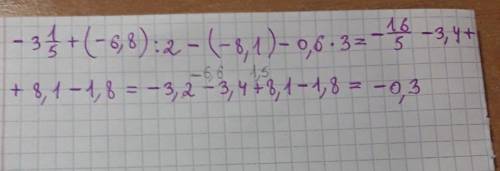 -3 1/5 + (-6,8) : 2 - (-8,1) - 0,6 · 3 = -16/5 - 3,4 +
-6,6 1,5
+ 8,1 - 1,8 = -3,2 - 3,4 + 8,1 - 1,8 = -0,3